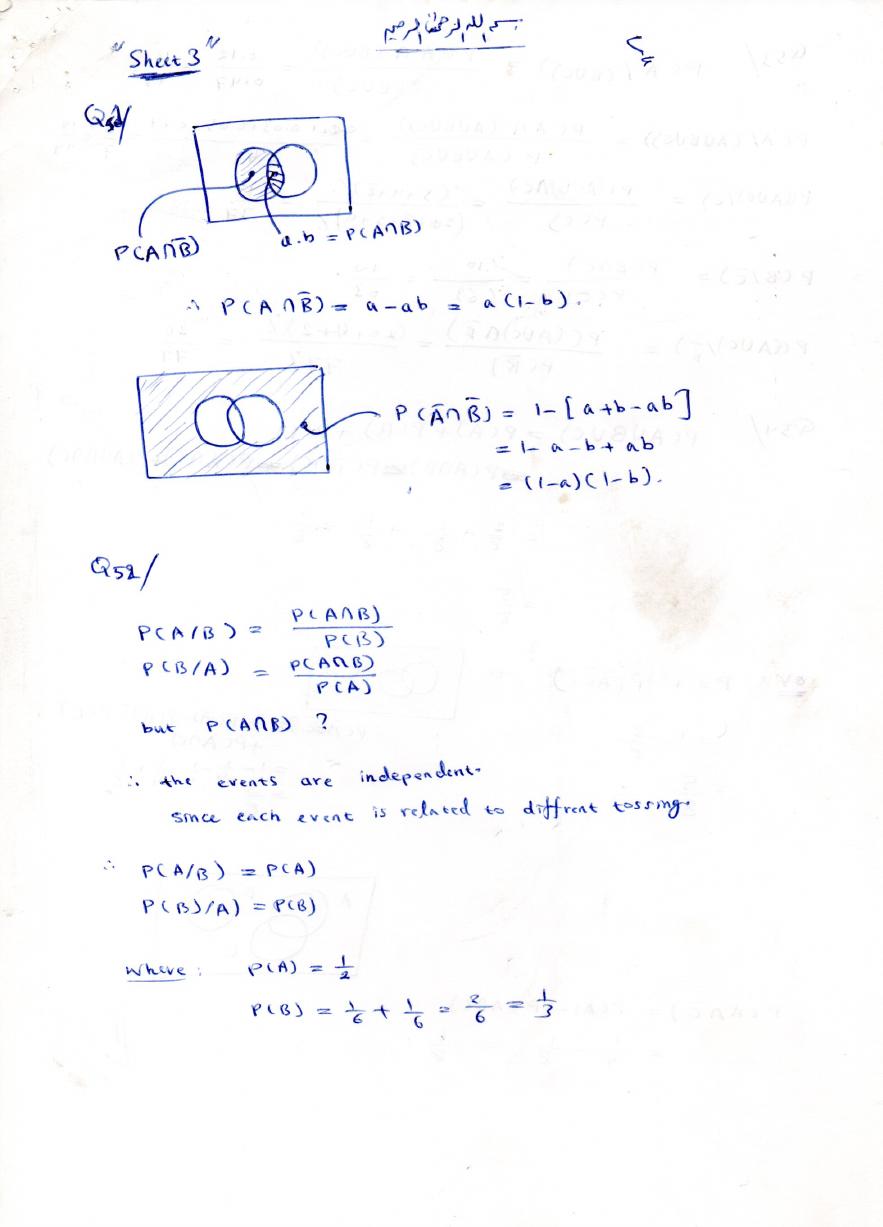 بسم الله الرحمن الرحيم
"Sheet 3"
P(A∩B̄)
a.b = P(A∩B)
∴ P(A∩B̄) = a-ab = a(1-b).
P(Ā∩B̄) = 1-[a+b-ab]
= 1-a-b+ab
= (1-a)(1-b).
Q52/
P(A/B) = P(A∩B)/P(B)
P(B/A) = P(A∩B)/P(A)
but P(A∩B) ?
∴ the events are independent.
since each event is related to diffrent tossing.
∴ P(A/B) = P(A)
P(B)/A) = P(B)
Where: P(A) = 1/2
P(B) = 1/6 + 1/6 = 2/6 = 1/3